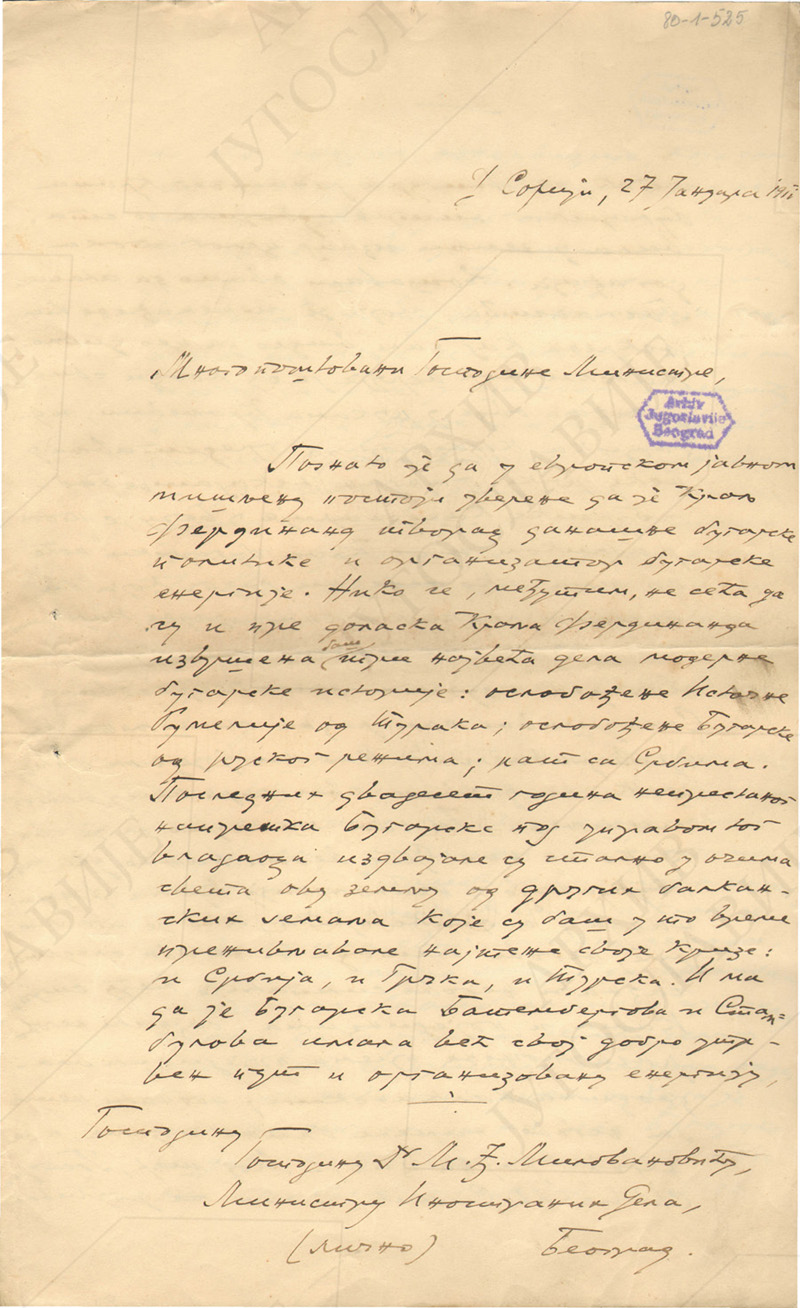 80-1-525
У Софији, 27 Јануара 1911
Многопоштовани Господине Министре,
Arhiv
Jugoslavije
Beograd
Познато је да у европском јавном
мишљену постоји уверене да је Краљ
Фердинанд творац данашне бугарске
политике и организатор бугарске
енергије. Нико се, међутим, не сећа да
су и пре доласка Краља Фердинанда
баш
извршена три највећа дела модерне
бугарске историје: ослобођене Источне
Румелије од Турака; ослобођене Бугарске
од руског режима; рат са Србима.
Последних двадесет година непрестаног
напретка Бугарске под управом тог
владаоца издвојале су стално у очима
света ову земљу од других балкан-
ских земаља које су баш у то време
преживљавале најтеже своје кризе:
и Србија, и Грчка, и Турска. И ма
да је Бугарска Батембергова и Стам-
булова имала већ свој добро утр-
вен пут и организовану енергију,
Господину
Господину Dr М. Ђ. Миловановићу,
Министру Иностраних Дела,
(лично) Београд.
АРХИВ
ЈУГОСЛАВИЈЕ